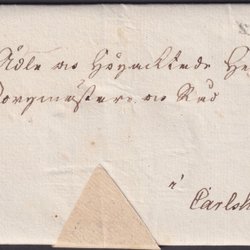 Ädle oc Höyacktede He
Borgmästare oc Råd
i
Carlsh